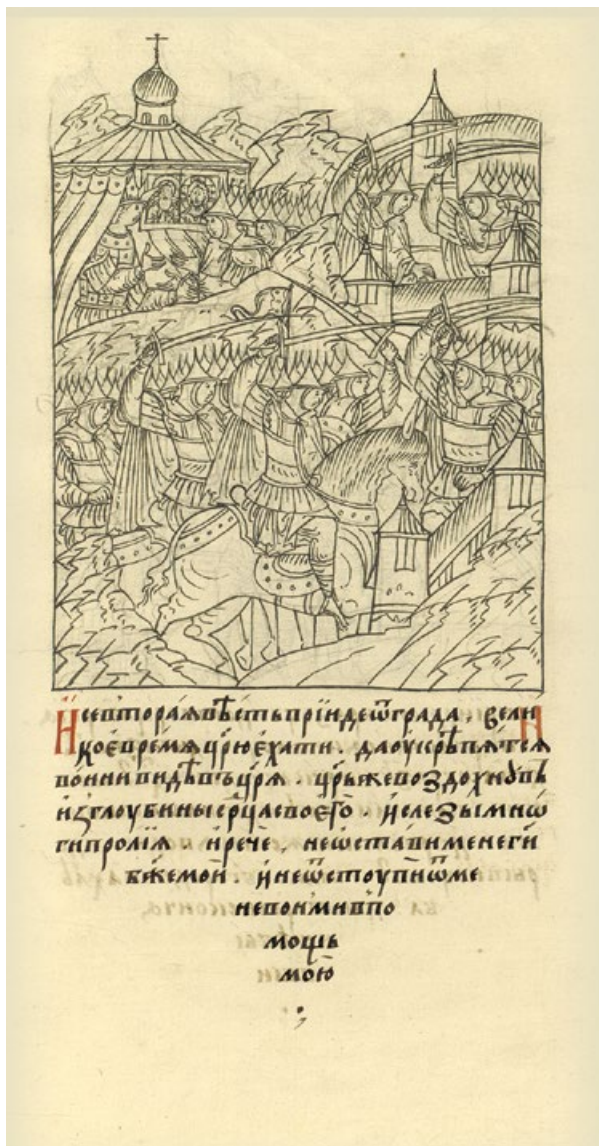 И се вторая вѣсть прїиде ѿ града . вели
кое время цр҃ю ехати . да оукрѣпятся
воини видѣвъ цр҃я . цр҃ь же воздохнꙋвъ
изглоубины ср҃ца своего . и слезы мнѡ
ги пролїя . и рече . не ѡстави мене ги
бж҃е мои . и не ѿстоупи ѿ ме
не вонми в по
мощь
мою